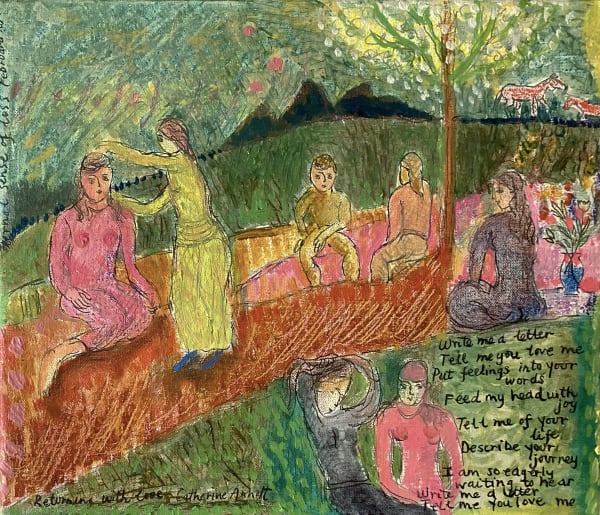 sense of loss
Write me a letter
Tell me you love me
Put feelings into your
words
Feed my head with
joy
Tell me of your
life
Describe your
journey
I am so eagerly
waiting to hear
Write me a letter
Tell me you love me
Returning with love Catherine